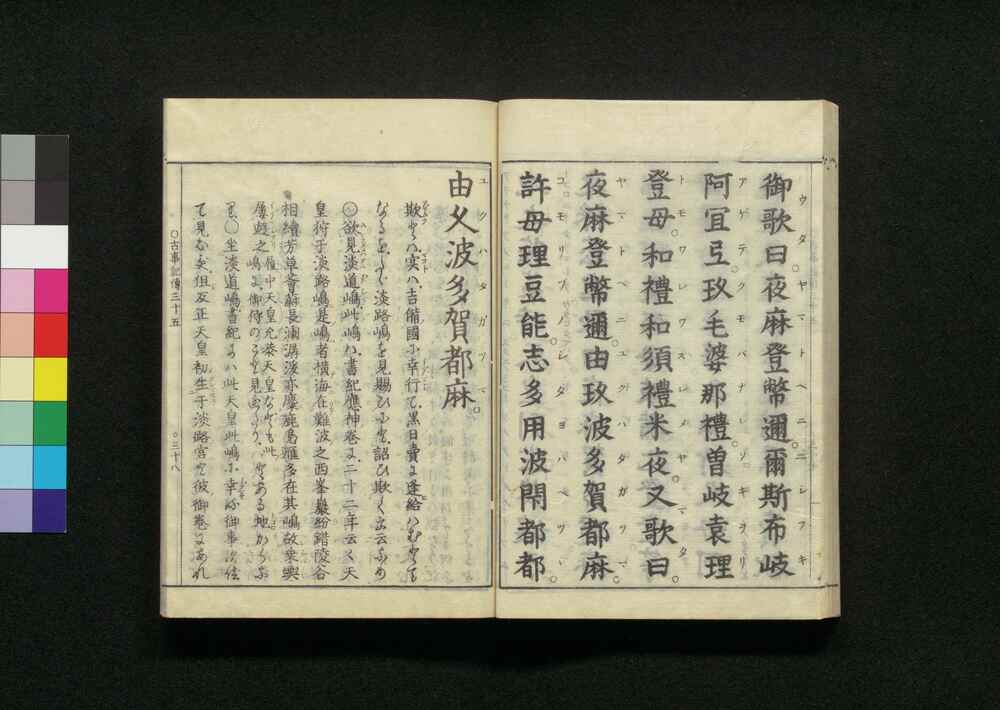 御歌曰。夜麻登幣邇。爾斯布岐
阿宜弖。玖毛婆那禮。曽岐袁理
登母。和禮和須禮米夜。又歌曰。
夜麻登幣邇。由玖波多賀都麻。
許母理豆能。志多用波閇都都。
由久波多賀都麻。
欺をハ、実ハ、吉備國に幸行て黒日賣に逢給ハむとて
淡路嶋を見賜ひに、詔ひ欺く
〇欲見淡道嶋、此嶋ハ、書紀應神巻に二十二年云々天
皇狩于淡路嶋是嶋者横海在難波之西峯巖紛錯陵谷
相續芳草薈蔚長瀾潺湲亦麋鹿鳧鴈多在其嶋故乗輿
屡遊之嶋履中天皇允恭天皇なども此
〇坐淡道嶋書紀にハ此天皇此嶋に幸る御事
て見なず但反正天皇初生于淡路宮と彼御巻にあれ
〇古事記傳三十五
〇三十八